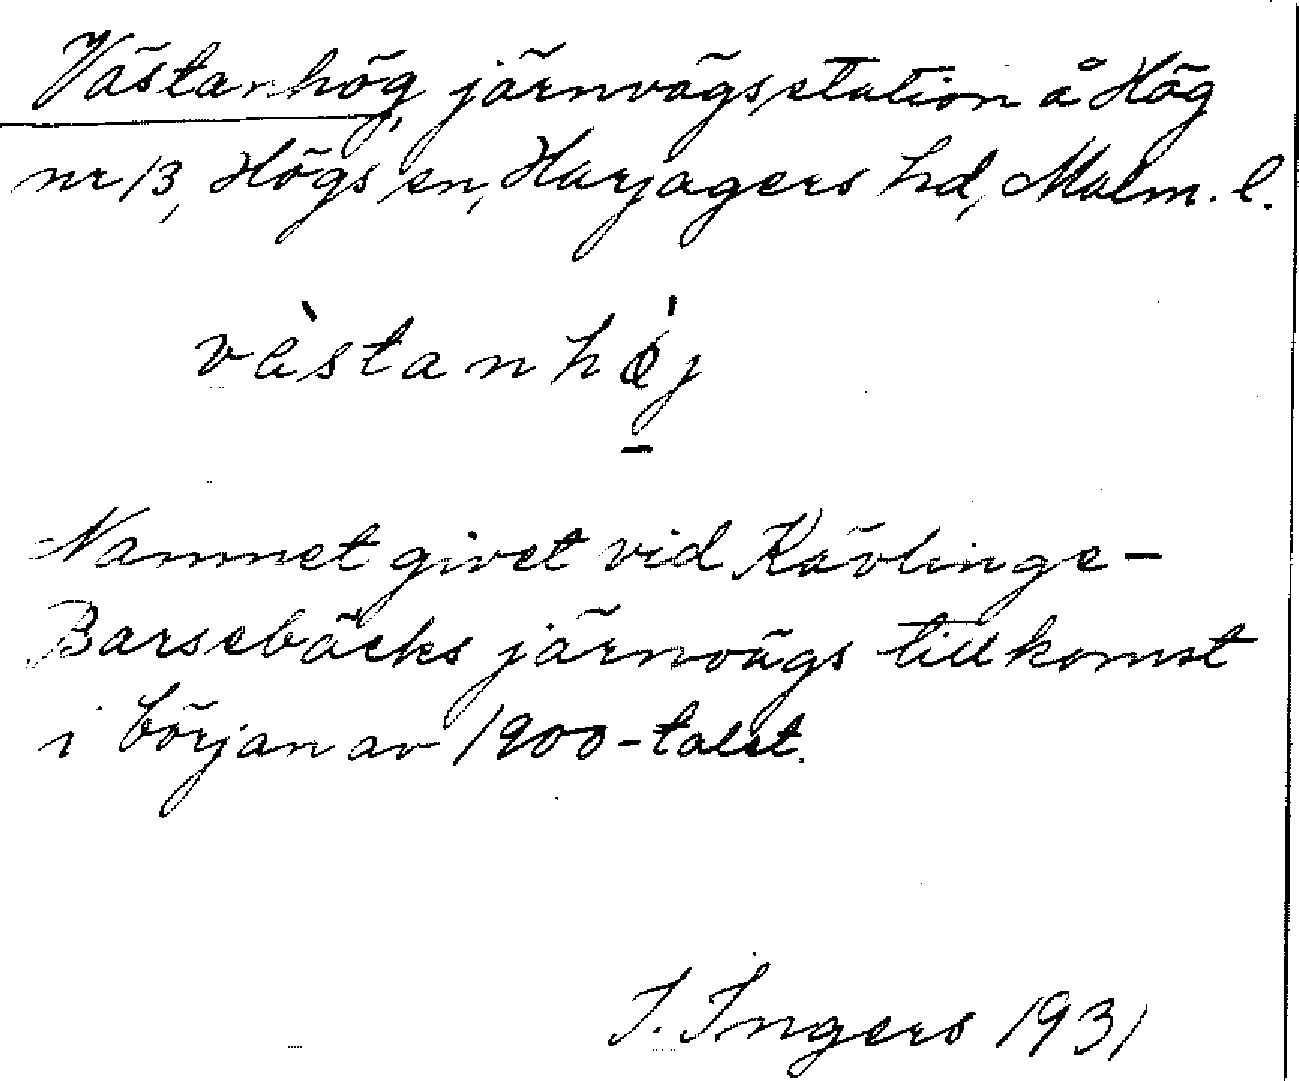 Västanhög, järnvägsstation å Hög
nr 13, Högs sn, Harjagers hd, Malm. l.
vàstanhǿj
Namnet givet vid Kävlinge-
Barsebäcks järnvägs tillkomst
i början av 1900-talet.
I. Ingers 1931